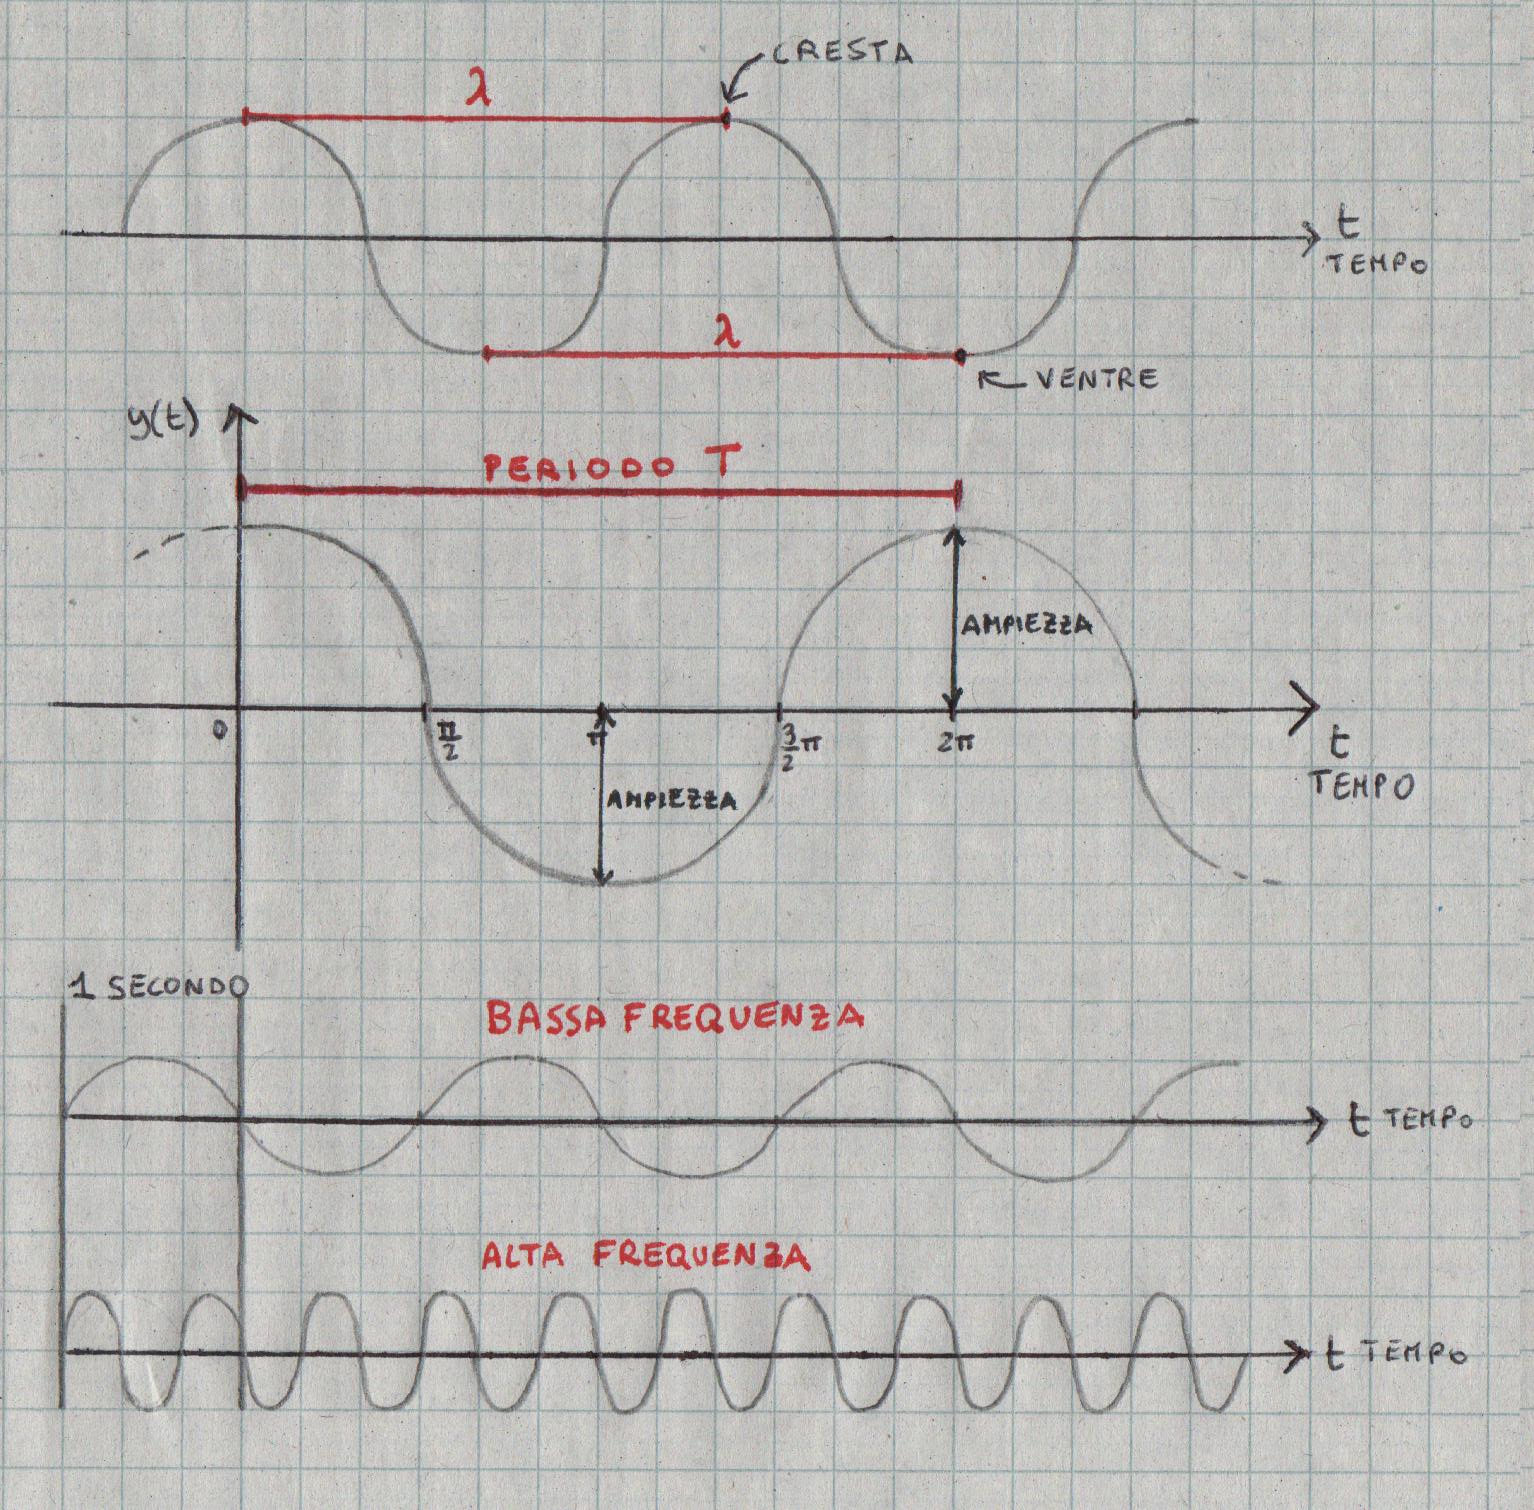 CRESTA
λ
t
TEMPO
λ
VENTRE
y(t)
PERIODO T
AMPIEZZA
0
π/2
π
3/2 π
2π
t
TEMPO
AMPIEZZA
1 SECONDO
BASSA FREQUENZA
t TEMPO
ALTA FREQUENZA
t TEMPO